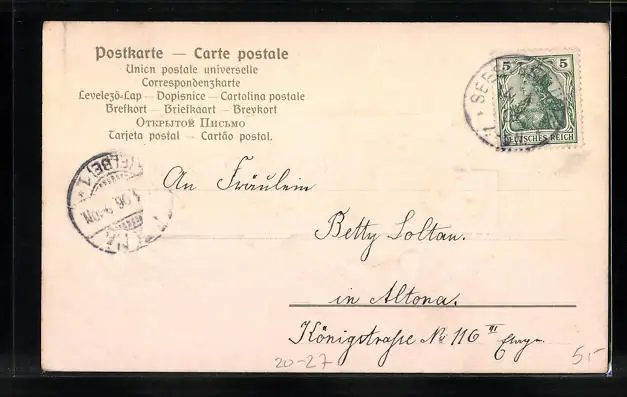 Postkarte — Carte postale
Union postale universelle
Correspondenzkarte
Levelező-Lap — Dopisnice — Cartolina postale
Brefkort — Briefkaart — Brevkort
Открытое Письмо
Tarjeta postal — Cartão postal.
5 5
DEUTSCHES REICH
An Fräulein
Betty Soltau.
in Altona.
Königstraße No 116 III
20-27
5,-